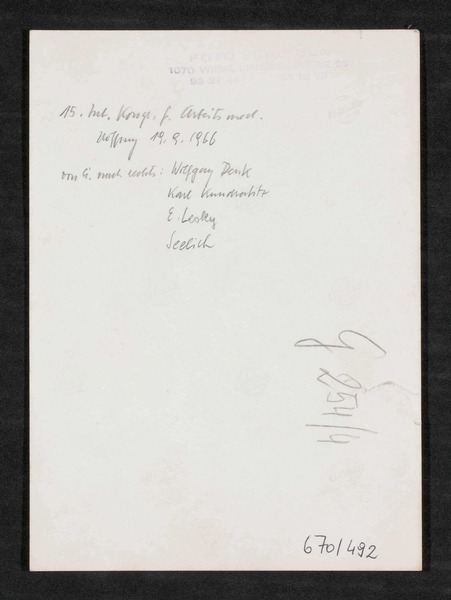 1070 WIEN,
15. Int. Kongr. f. Arbeitsmed.
Hoffnung 19.9.1966
von li. nach rechts: Wolfgang Denk
Karl Kundratitz
E. Lesky
Seelich
G 254/4
670/492